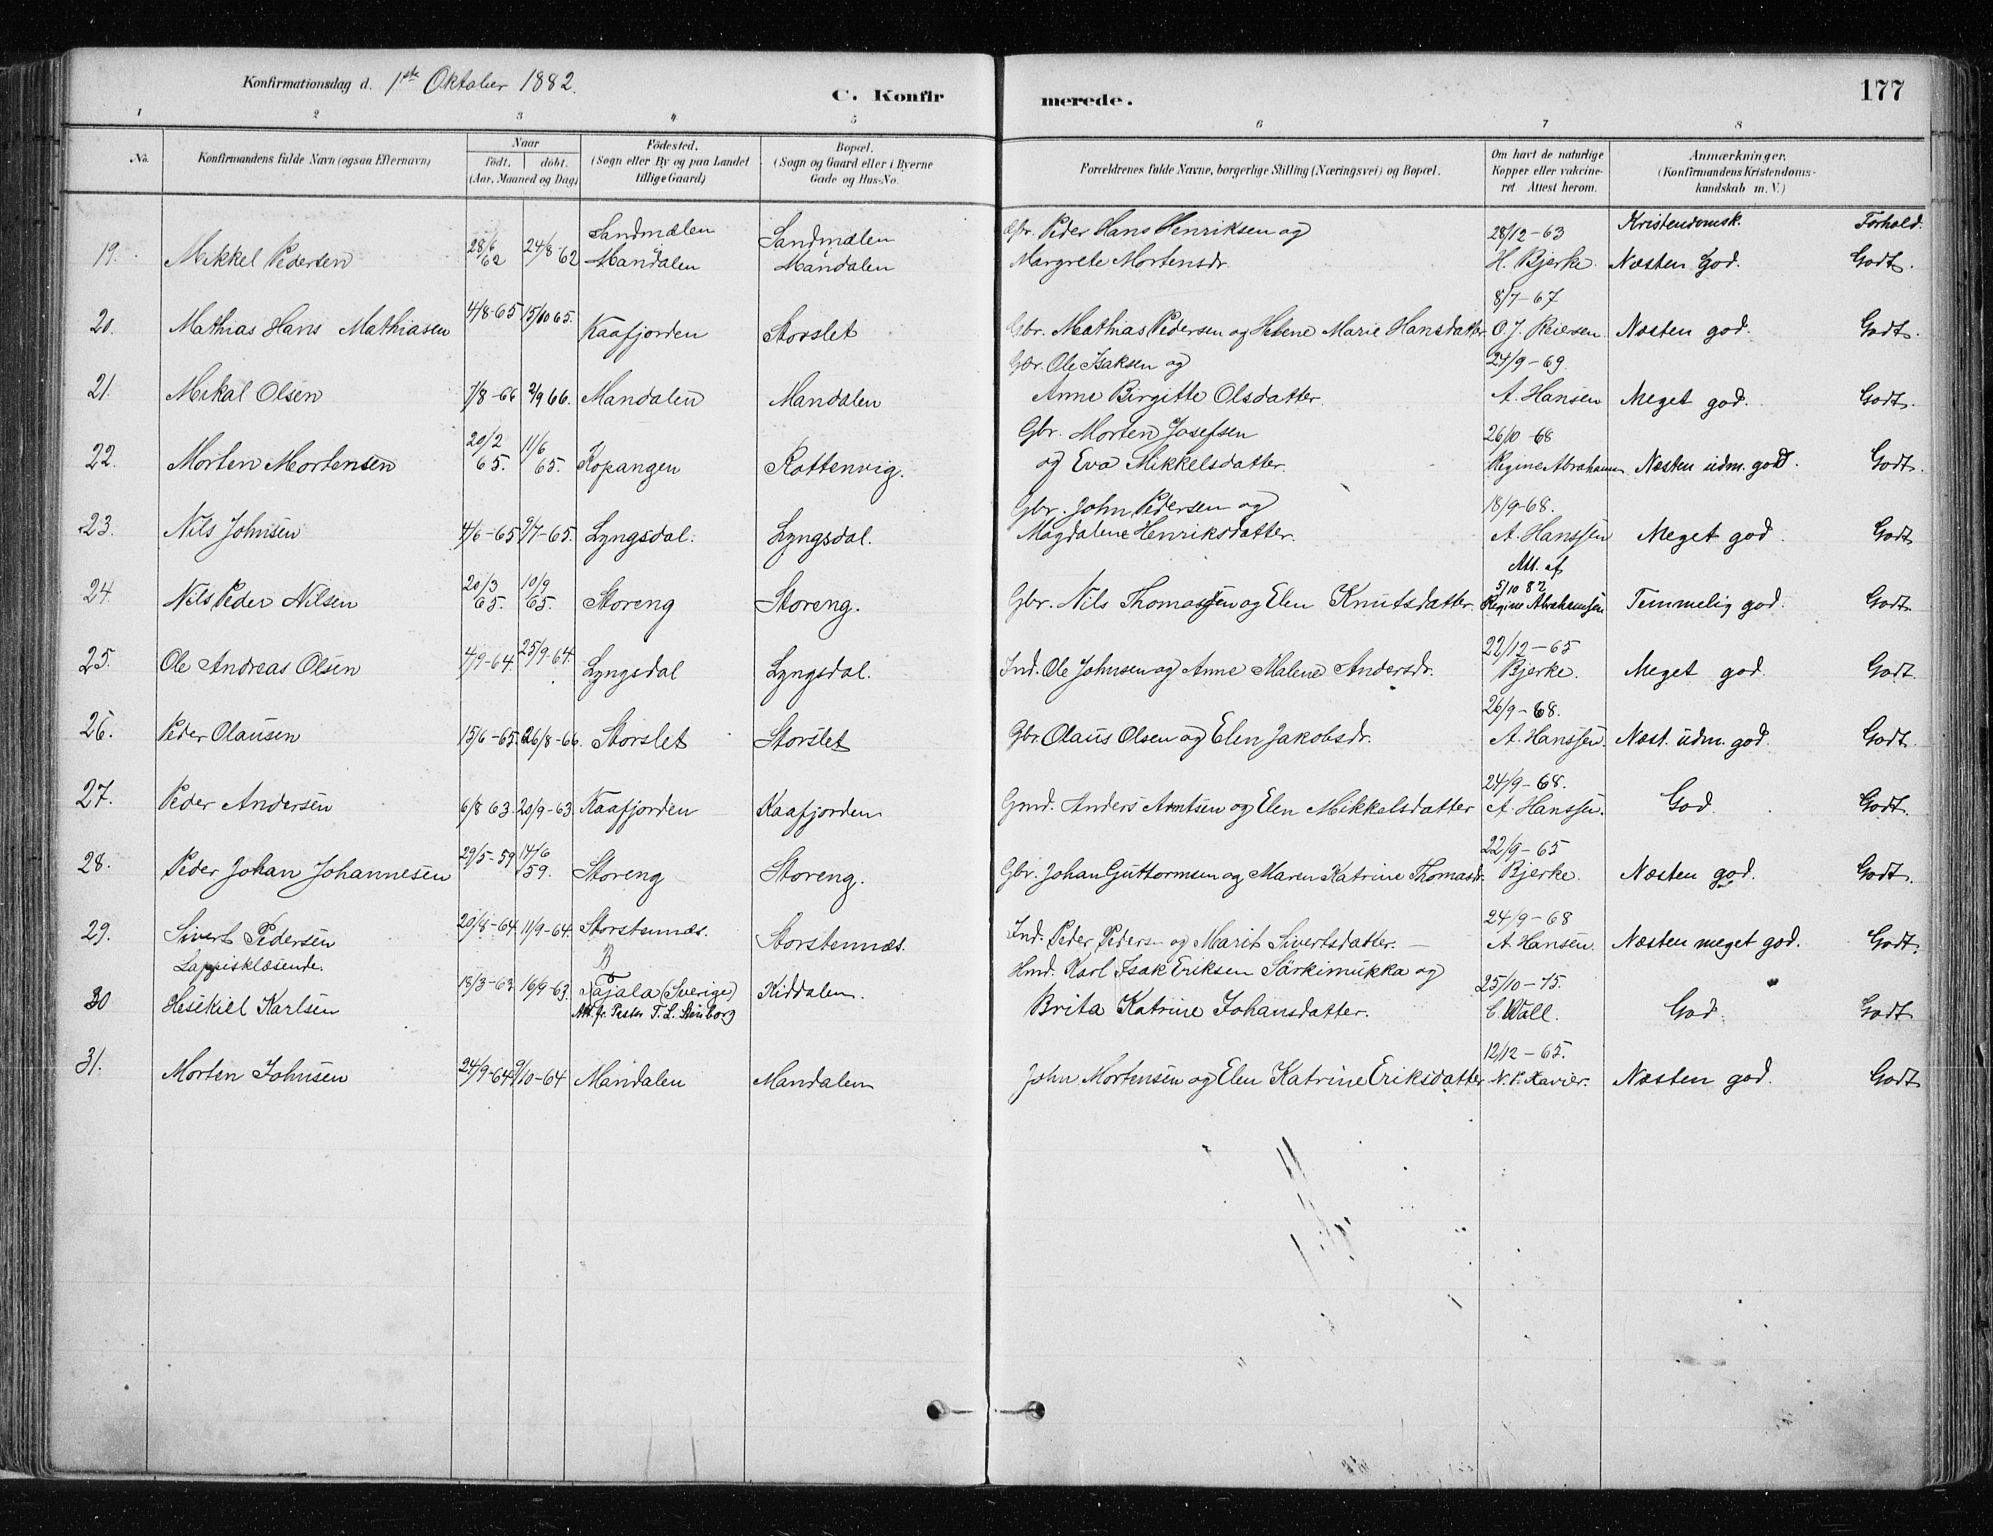 Konfirmationsdag d. 1ste Oktober 1882.
C. Konfirmerede.
177
1 2 3 4 5 6 7 8
No. Konfirmandens fulde Navn (ogsaa Efternavn) Naar født. døbt. (Aar, Maaned og Dag) Fødested. (Sogn eller By og paa Landet tillige Gaard) Bopæl. (Sogn og Gaard eller i Byerne Gade og Hus-No. Forældrenes fulde Navne, borgerlige Stilling (Næringsvei) og Bopæl. Om havt de naturlige Kopper eller vakcineret Attest herom. Anmærkninger. (Konfirmandens Kristendomskundskab m. V.)
Kristendomsk. Forhold.
19. Mikkel Pedersen 28/6 62 24/8-62 Sandmælen Mandalen Sandmælen Mandalen Gbr. Peder Hans Henriksen og Margrete Mortensdr. 28/12-63 H. Bjerke. Næsten god. Godt.
20. Mathias Hans Mathiasen 4/8-65 15/10 65. Kaafjorden Storslet Gbr. Mathias Pedersen og Helene Marie Hansdatter 8/7-67 O. J. Reiersen Næsten god. Godt.
21. Mikal Olsen 7/8-66 2/9 66. Mandalen Mandalen Ole Isaksen og Anne Birgitte Olsdatter. 24/9-69 A. Hansen Meget god. Godt.
22. Morten Mortensen 20/2 65. 11/6 65. Kopangen Rottenvig. Gbr. Morten Josefsen og Eva Mikkelsdatter. 26/10 68 Regine Abrahamsen Næsten udm. god. Godt.
23. Nils Johnsen 4/6-65 9/7-65. Lyngsdal. Lyngsdal. Gbr. John Pedersen og Magdalene Henriksdatter. 18/9-68. A. Hanssen Meget god. Godt
24. Nils Peder Nilsen 20/3 65. 10/9 65. Storeng Storeng. Gbr. Nils Thomassen og Elen Knutsdatter. Att. af 5/10 82 Regine Abrahamsen Temmelig god. Godt.
25. Ole Andreas Olsen 4/9-64. 25/9-64. Lyngsdal Lyngsdal. Ind. Ole Johnsen og Anne Malene Andersdr. 22/12-65 Bjerke. Meget god. Godt.
26. Peder Olausen 15/6-65. 26/8-66. Storslet Storslet Gbr. Olaus Olsen og Elen Jakobsdr. 26/9-68. A. Hanssen. Næst. udm. god. Godt.
27. Peder Andersen 6/8 63. 20/9-63 Kaafjorden Kaafjorden Gmd. Anders Arntsen og Elen Mikkelsdatter 24/9-68. A. Hanssen. God. Godt.
28. Peder Johan Johannesen 29/5-59 14/6 59. Storeng Storeng. Gbr. Johan Guttormsen og Maren Katrine Thomasdr. 22/9-65 Bjerke. Næsten god. Godt.
29. Sivert Pedersen 20/8-64. 11/9-64. Storstennæs. Storstennæs. Ind. Peder Peders- og Marit Sivertsdatter. 24/9-68 A. Hansen. Næsten meget god. Godt.
Lappisklæsende.
30 Hesekiel Karlsen 18/3-63 16/9-63. Pajala (Sverige) Att. fr. Pastor Kiddalen. Hmd. Karl Isak Eriksen Särkimukka og Brita Katrine Johansdatter. 25/10-75. C. Wall. God. Godt
31. Morten Johnsen 24/9-64 9/10-64 Mandalen Mandalen John Mortensen og Elen Katrine Eriksdatter 12/12-65. N. P. Xavier. Næsten god. Godt